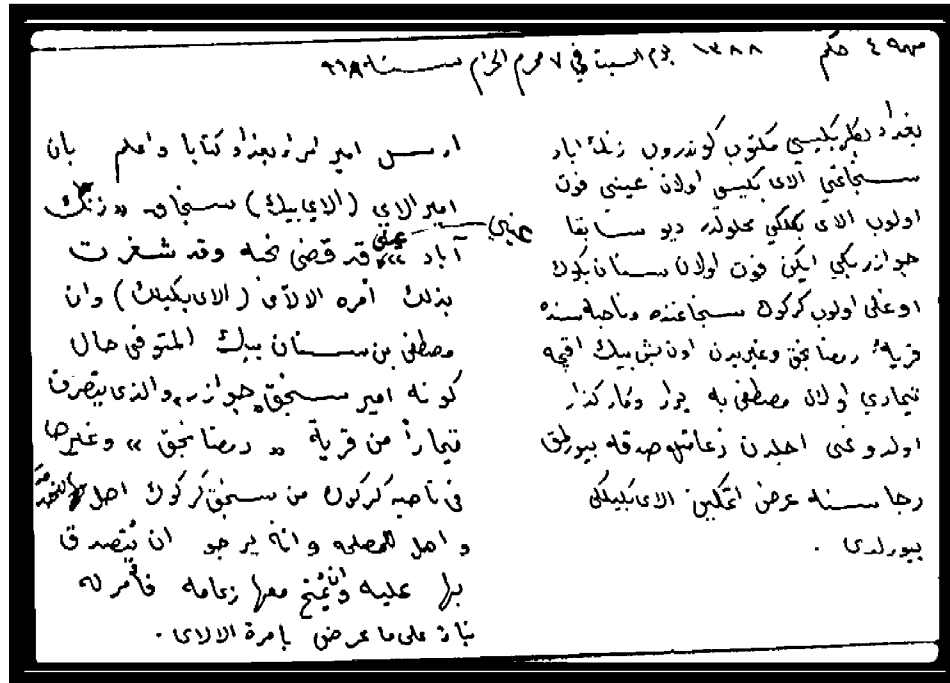 مهمه ٤ حكم ١٣٨٨ يوم السبت في ٧ محرم الحرام سنة ٩٦٨
بغداد بكلربكيسى مكتوب كوندروب زنك اباد
سنجاغى الاى بكيسى اولان عينى فوت
اولوب الاى بكلكى محلولدر ديو سابقا
جوازر بكى ايكن فوت اولان سنان بكوك
اوغلى اولوب كركوك سنجاغنده ناحيه سنده
قريۀ وغيريدن اون بيك اقچه
تيمارى اولان مصطفى يه يرار وكاركذار
اولدوغى اجلدن زعامتله صدقه بيورلمق
رجاسنه عرض اتمكين الاى بكيلكى
بيورلدى .
ارسل امير امراء بغداد كتابا واعلم بان
امير الاي (الاي بيك) سنجاق «زنك
آباد» عيني قد قضى نحبه وقد شغرت
بذلك امره الالاى (الاى بكيلك) وان
مصطفى بن سنان بيك المتوفى حال
كونه امير سنجق جوازر، والذى يتصرف
تيماراً من قرية « » وغيرها
فى ناحية كركوك من سنجق كركوك اهل للخدمة
و اهل للمصلحه و انه يرجو ان يُتصدق
بها عليه وان يُمنح معها زعامه فأمر له
بناءً على ما عرض بإمرة الالاى .